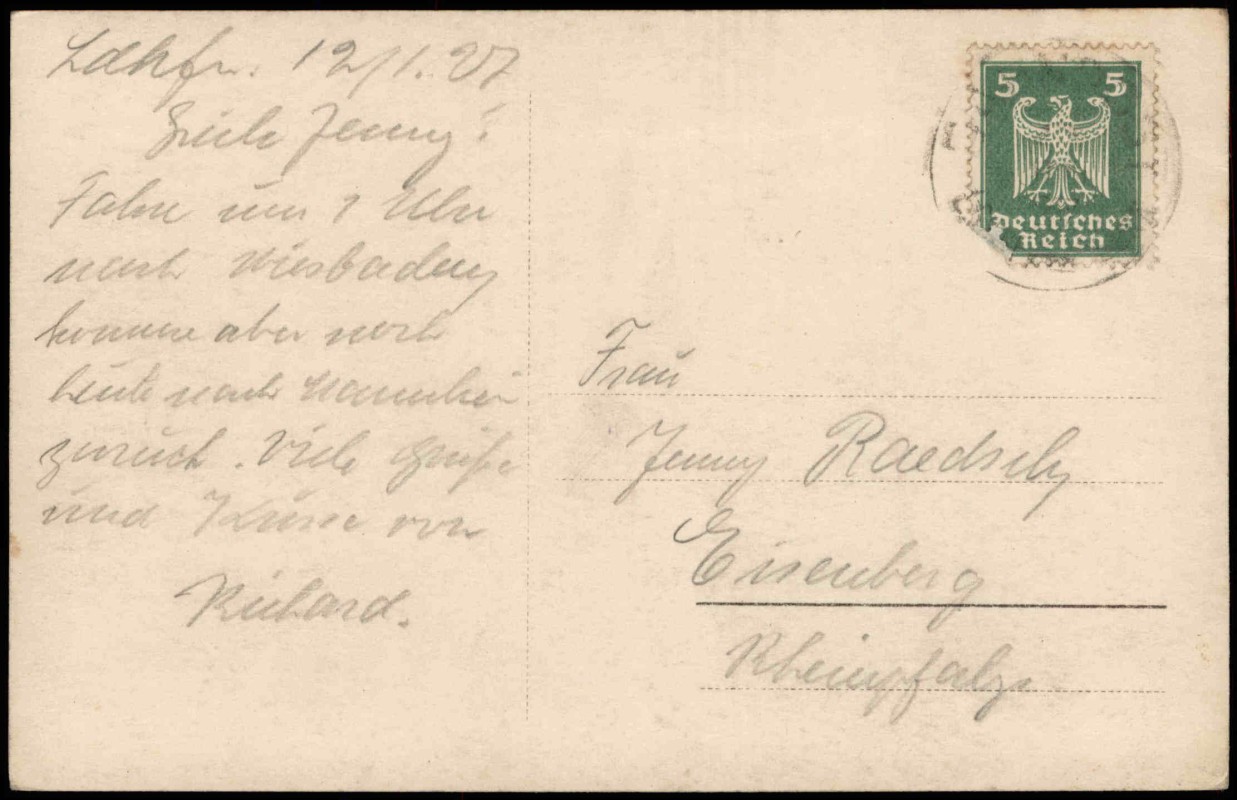 12/1.27
Jenny!
Fahre um 1 Uhr
nach Wiesbaden
komme aber noch
heute nach Mannheim
zurück. Viele Grüße
und Küsse von
Richard.
5 5
Deutsches
Reich
Frau
Jenny Raedsch
Eisenberg
Rheinpfalz